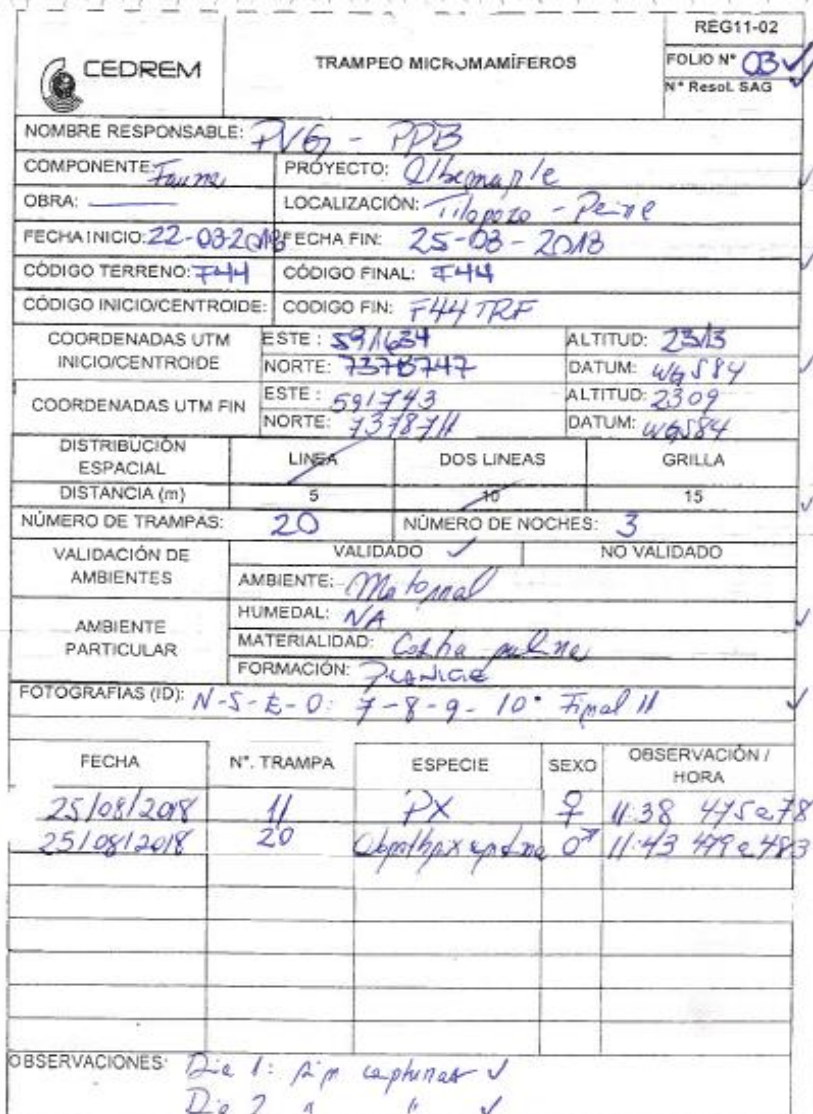 REG11-02
CEDREM
TRAMPEO MICROMAMÍFEROS
FOLIO N° 03
N° Resol. SAG
NOMBRE RESPONSABLE: PVG - PPB
COMPONENTE: Fauna PROYECTO: Albemarle
OBRA: LOCALIZACIÓN: Tilopozo - Peine
FECHA INICIO: 22-03-2018 FECHA FIN: 25-03-2018
CÓDIGO TERRENO: F44 CÓDIGO FINAL: F44
CÓDIGO INICIO/CENTROIDE: CODIGO FIN: F44 TRF
COORDENADAS UTM INICIO/CENTROIDE
ESTE: 591634 ALTITUD: 2313
NORTE: 7378747 DATUM: WGS84
COORDENADAS UTM FIN
ESTE: 591743 ALTITUD: 2309
NORTE: 7378711 DATUM: WGS84
DISTRIBUCIÓN ESPACIAL LINEA DOS LINEAS GRILLA
DISTANCIA (m) 5 10 15
NÚMERO DE TRAMPAS: 20 NÚMERO DE NOCHES: 3
VALIDACIÓN DE AMBIENTES VALIDADO ✓ NO VALIDADO
AMBIENTE: Matorral
AMBIENTE PARTICULAR
HUMEDAL: NA
MATERIALIDAD: Costra salina
FORMACIÓN: PLANICIE
FOTOGRAFIAS (ID): N-S-E-O: 7-8-9-10 Final 11
FECHA N°. TRAMPA ESPECIE SEXO OBSERVACIÓN / HORA
25/08/2018 11 PX ♀ 11:38 475 a 78
25/08/2018 20 ♂ 11:43 479 a 483
OBSERVACIONES: Dia 1: sin capturas ✓
Dia 2 " " ✓